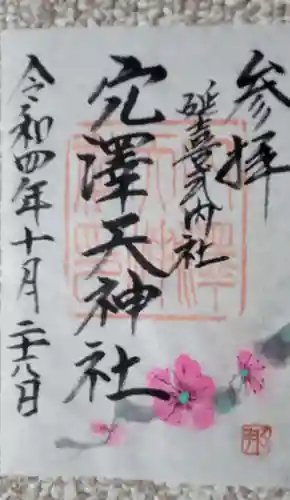 参拝
延喜式内社
穴澤天神社
令和四年十月二十八日